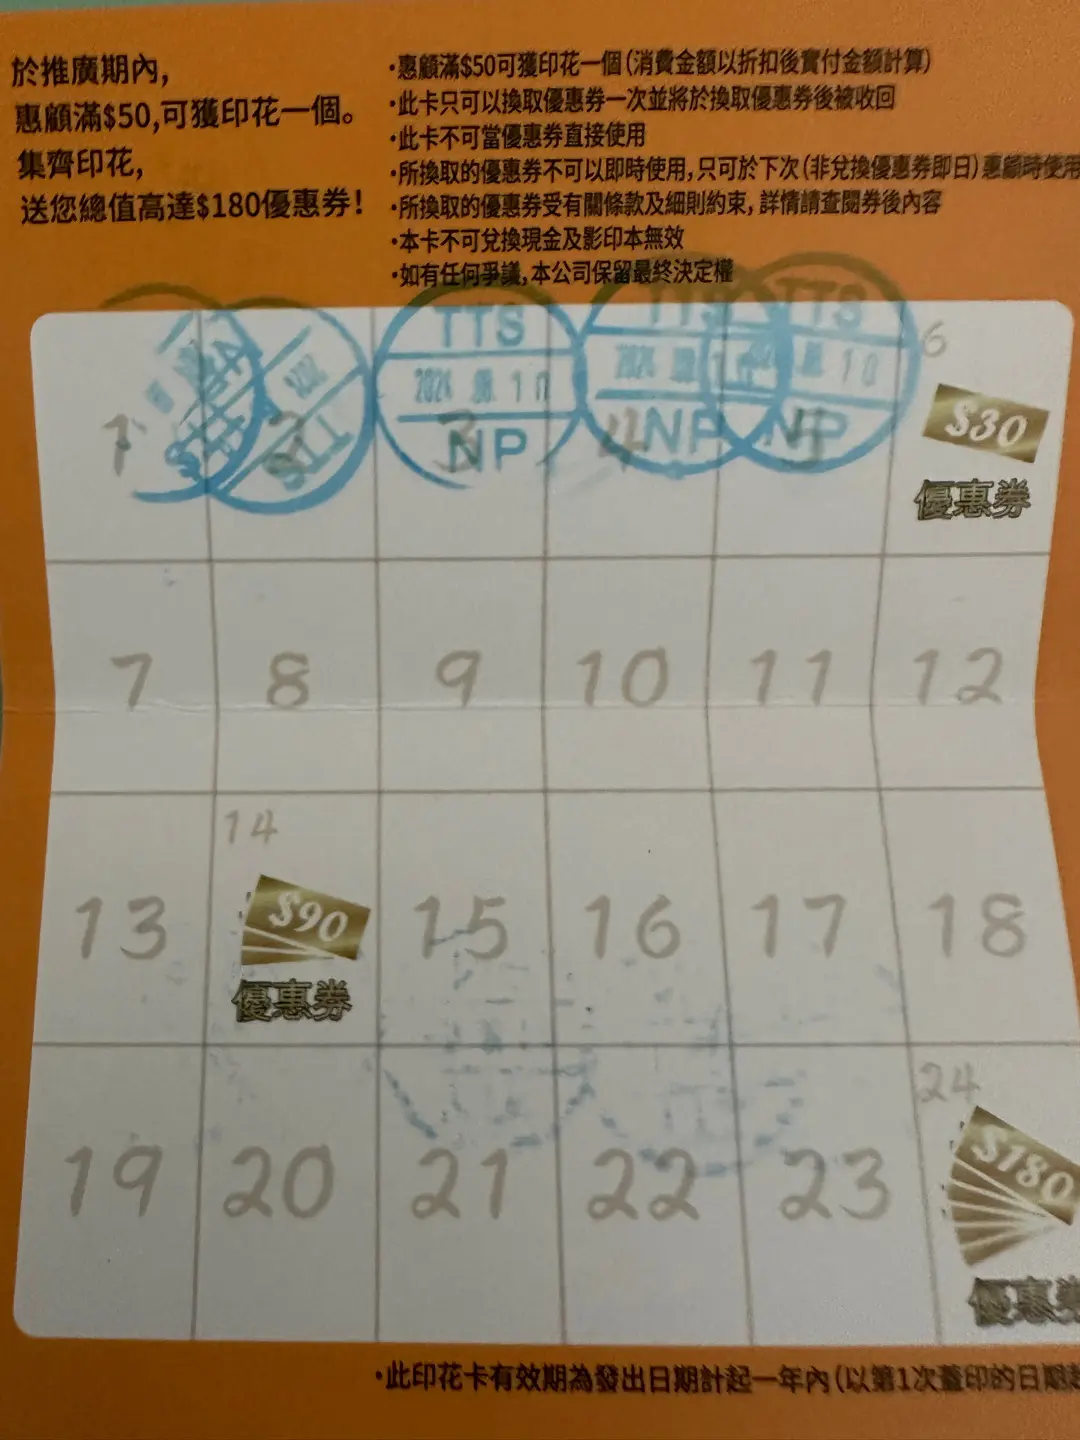 於推廣期內，
惠顧滿$50,可獲印花一個。
集齊印花，
送您總值高達$180優惠券！
·惠顧滿$50可獲印花一個(消費金額以折扣後實付金額計算)
·此卡只可以換取優惠券一次並將於換取優惠券後被收回
·此卡不可當優惠券直接使用
·所換取的優惠券不可以即時使用,只可於下次(非兌換優惠券即日)惠顧時使用
·所換取的優惠券受有關條款及細則約束,詳情請查閱券後內容
·本卡不可兌換現金及影印本無效
·如有任何爭議,本公司保留最終決定權
TTS TTS TTS
2024 10 10
NP NP NP
TTS
1 2 3 4 5 6
$30
優惠券
7 8 9 10 11 12
13 14 15 16 17 18
$90
優惠券
19 20 21 22 23 24
$180
優惠券
·此印花卡有效期為發出日期計起一年內(以第1次蓋印的日期起